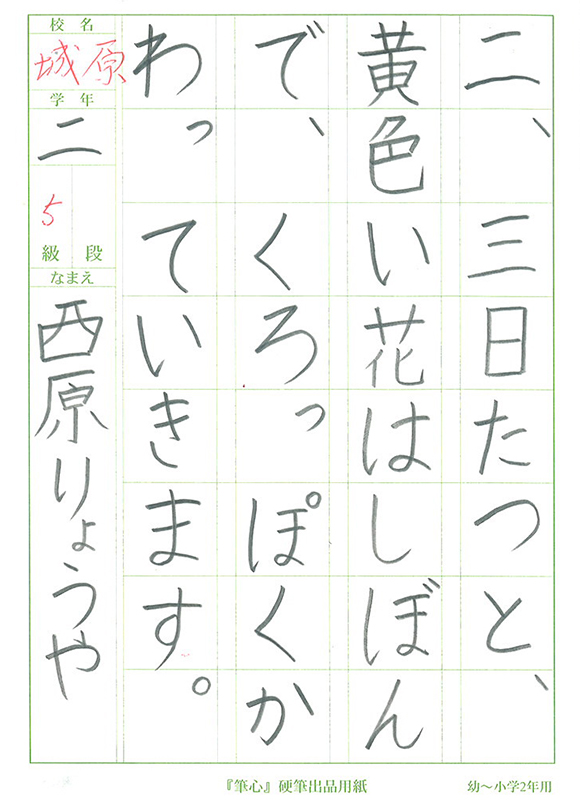 二、三日たつと、
黄色い花はしぼん
で、くろっぽくか
わっていきます。
校名
城原
学年
二
5
級 段
なまえ
西原りょうや
『筆心』硬筆出品用紙
幼～小学2年用